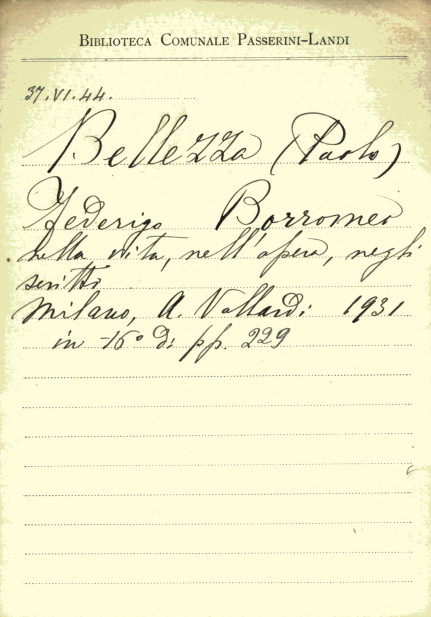 BIBLIOTECA COMUNALE PASSERINI-LANDI
37.VI.44.
Bellezza (Paolo)
Federigo Borromeo
nella vita, nell'opera, negli
scritti
Milano, A. Vallardi 1931
in 16° di pp. 229